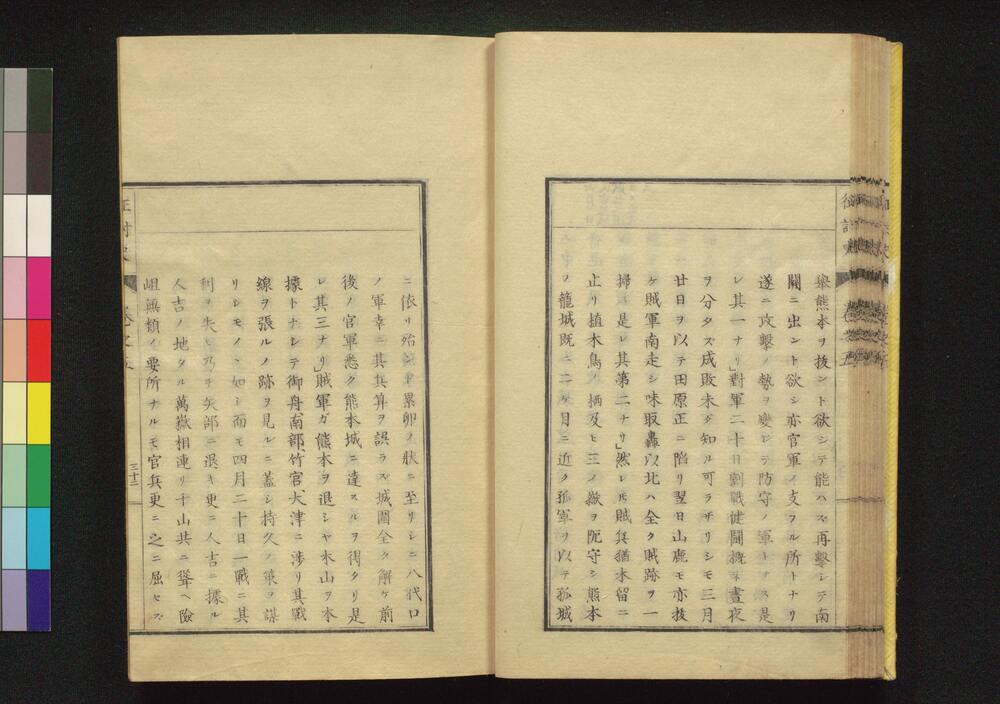 擧熊本ヲ拔ント欲シテ能ハス再擊シテ南
關ニ出ント欲シ亦官軍ノ支フル所トナリ
遂ニ攻擊ノ勢ヲ變シテ防守ノ軍トナス是
レ其一ナリ」對軍二十日劇戰健鬪概子晝夜
ヲ分タス成敗未ダ知ル可ラザリシモ三月
廿日ヲ以テ田原正ニ陷リ翌日山鹿モ亦拔
ケ賊軍南走シ味取轟以北ハ全ク賊跡ヲ一
掃ス是レ其第二ナリ」然レ𪜈賊兵猶木留ニ
止リ植木鳥ノ栖及ヒ三ノ嶽ヲ阨守シ熊本
ノ籠城既ニ二ケ月ニ近ク孤軍ヲ以テ孤城
ニ依リ殆ント累卵ノ狀ニ至リシニ八代口
ノ軍幸ニ其兵算ヲ誤ラス城圍全ク解ケ前
後ノ官軍悉ク熊本城ニ達スルヲ得タリ是
レ其三ナリ」賊軍ガ熊本ヲ退シヤ木山ヲ本
據トナシテ御舟南部竹宮大津ニ涉リ其戰
線ヲ張ルノ跡ヲ見ルニ蓋シ持久ノ策ヲ謀
リシモノヽ如シ而モ四月二十日一戰ニ其
利ヲ失ヒ乃ヲ矢部ニ退キ更ニ人吉ニ據ル
人吉ノ地タル萬嶽相連リ千山共ニ聳ヘ險
岨無類ノ要所ナルモ官兵更ニ之ニ屈セス
三十二